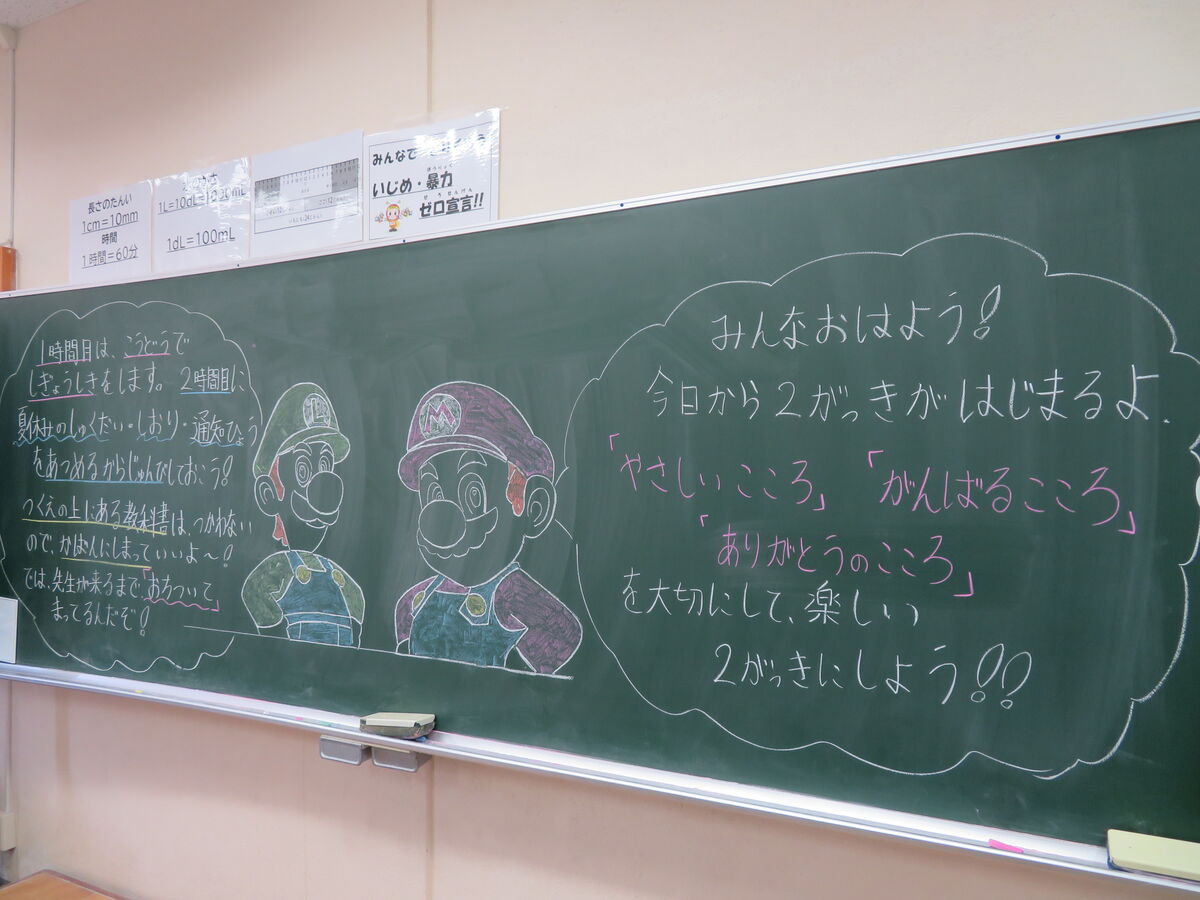 長さのたんい
1cm=10mm
時間
1時間=60分
1L=10dL=1000mL
1dL=100mL
みんなで
いじめ・暴力
ぼうりょく
ゼロ宣言!!
せんげん
1時間目は、こうどうで
しぎょうしきをします。2時間目に
夏休みのしゅくだい・しおり・通知ひょう
をあつめるからじゅんびしておこう!
つくえの上にある教科書は、つかわない
ので、かばんにしまっていいよ〜!
では、先生が来るまで、「おちついて」
まってるんだぞ!
L
M
みんなおはよう!
今日から2がっきがはじまるよ.
「やさしいこころ」「がんばるこころ」
「ありがとうのこころ」
を大切にして、楽しい
2がっきにしよう!!